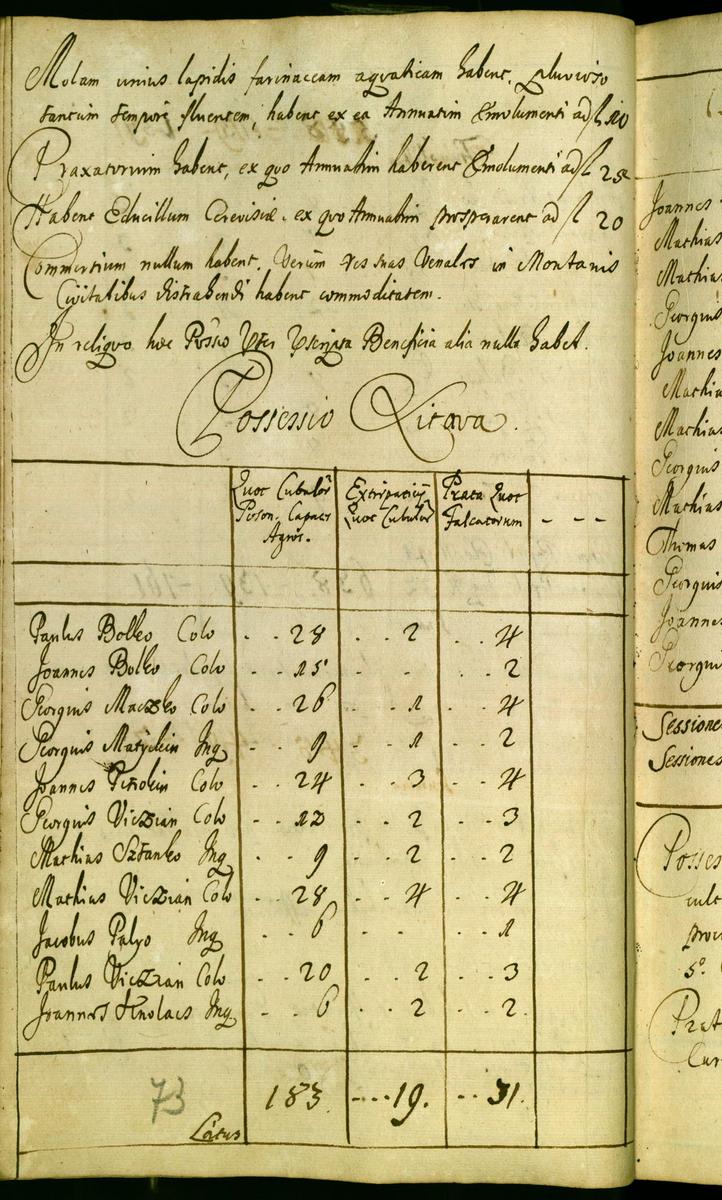 Molam unius lapidis farinaceam aquaticam habent. pluvioso
tantum tempore fluentem, habent ex ea Annuatim Emolumenti ad f 10
Praxatorium habent, ex quo Annuatim haberent Emolumenti ad f 25
Habent Educillum Cerevisiæ. ex quo Annuatim prosperarent ad f 20
Commertium nullum habent. Verùm res suas Venales in Montanis
Civitatibus distrahendi habent commoditatem.
In reliquo hæc Possio Beneficia alia nulla habet.
Possessio Litava.
Quot Cubulor Poson. Capaces Agros.
Quot Cubulor
Prata Quot Falcatorum
- - -
Paulus Bolko Colo . . 28 . . 2 . . 4
Joannes Bolko Colo . . 15 . . . . 2
Georgius Maczko Colo . . 26 . . 1 . . 4
Georgius Inq . . 9 . . 1 . . 2
Joannes Colo . . 24 . . 3 . . 4
Georgius Viczian Colo . . 12 . . 2 . . 3
Mathias Sztanko Inq . . 9 . . 2 . . 2
Mathias Viczian Colo . . 28 . . 4 . . 4
Jacobus Palyo Inq . . 6 . . . . 1
Paulus Viczian Colo . . 20 . . 2 . . 3
Joannes Inq . . 6 . . 2 . . 2
73
Latus 183. . . . . 19. . . 31.
Joannes
Mathias
Mathias
Georgius
Joannes
Mathia
Mathias
Georgius
Mathias
Thomas
Georgius
Joannes
Georgius
Sessione
Sessiones
Posses
cult
5º.
Prat